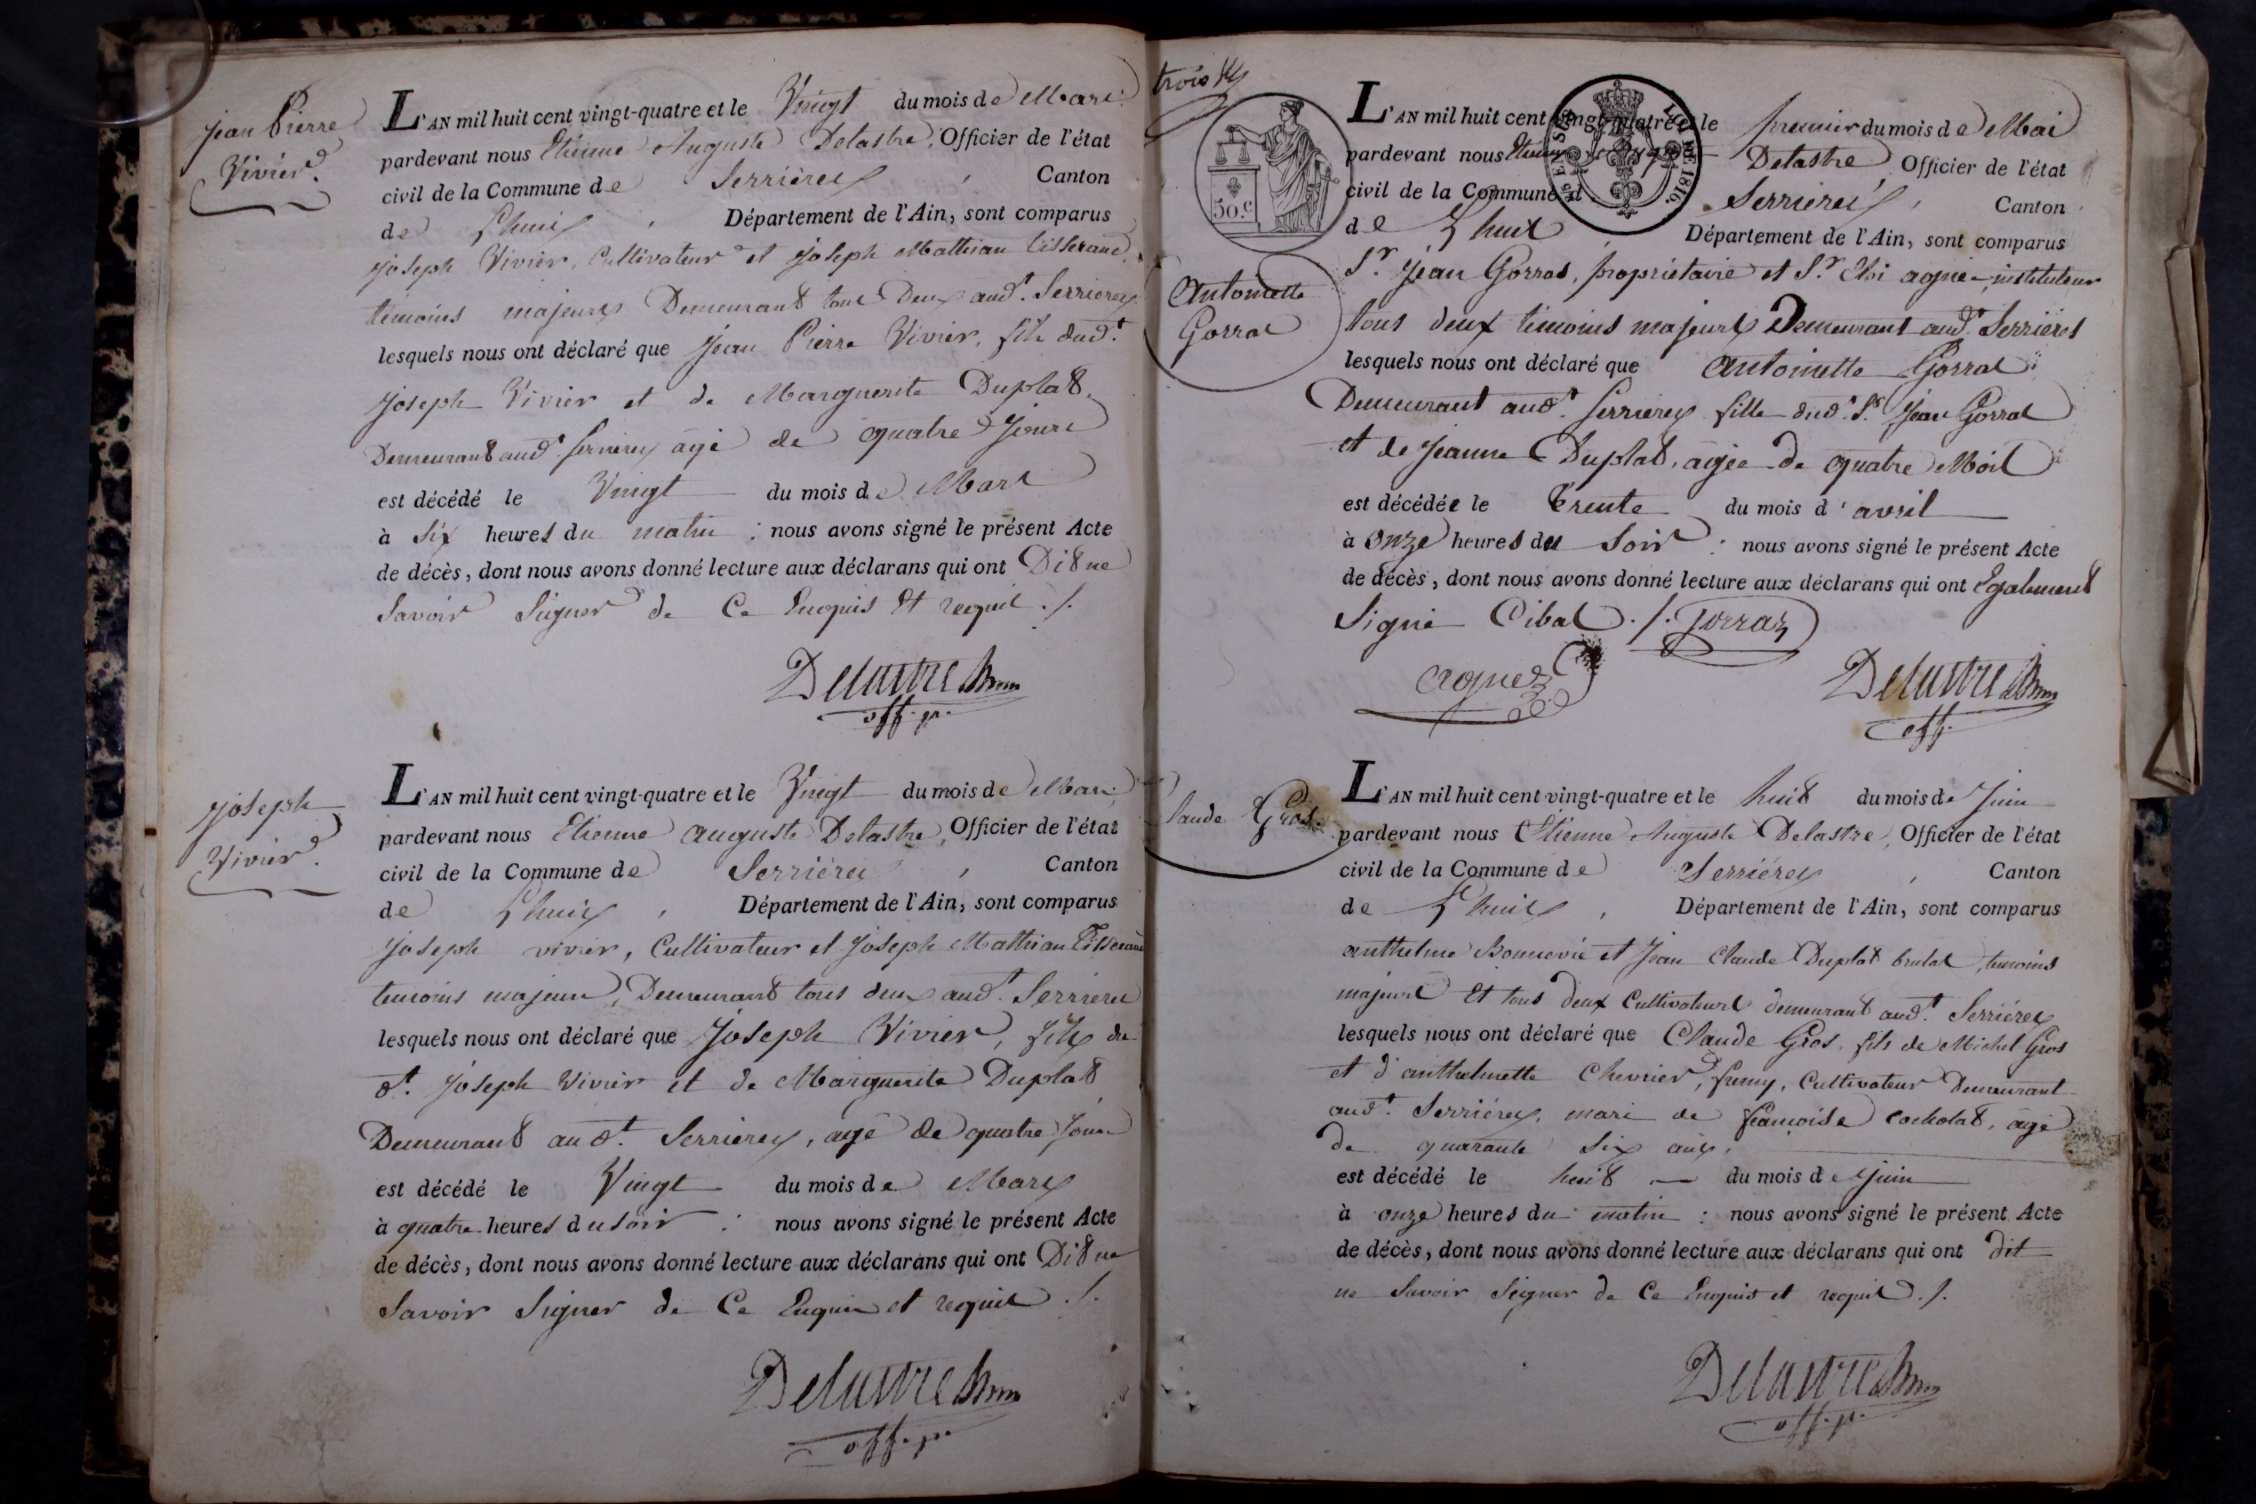 Jean Pierre
Vivier.
L'AN mil huit cent vingt-quatre et le Vingt du mois de Mars
pardevant nous Etienne Auguste Delastre, Officier de l'état
civil de la Commune de Serrières, Canton
de Lhuis, Département de l'Ain, sont comparus
Joseph Vivier, Cultivateur et Joseph Mathian tisserand,
témoins majeurs Demeurant tous Deux audt. Serrières
lesquels nous ont déclaré que Jean Pierre Vivier, fils dudt.
Joseph Vivier et de Marguerite Duplat,
Demeurant audt. Serrières agé de quatre Jours
est décédé le Vingt du mois de Mars
à Six heures du matin : nous avons signé le présent Acte
de décès, dont nous avons donné lecture aux déclarans qui ont Dit ne
Savoir Signer de Ce Enquis et requis ./.
Delastre
off. p.
Joseph
Vivier.
L'AN mil huit cent vingt-quatre et le Vingt du mois de Mars
pardevant nous Etienne auguste Delastre, Officier de l'état
civil de la Commune de Serrières, Canton
de Lhuis, Département de l'Ain, sont comparus
Joseph vivier, Cultivateur et Joseph Mathian Tisserand
temoins majeurs, Demeurant tous deux audt. Serrières
lesquels nous ont déclaré que Joseph Vivier, fils du
dt. Joseph Vivier et de Marguerite Duplat
Demeurant audt. Serrières, agé de quatre Jours
est décédé le Vingt du mois de Mars
à quatre heures du soir : nous avons signé le présent Acte
de décès, dont nous avons donné lecture aux déclarans qui ont Dit ne
Savoir Signer de Ce Enquis et requis ./.
Delastre
off. p.
trois
50.c
LOI DE 1816.
Antoinette
Gorras
L'AN mil huit cent vingt-quatre et le premier du mois de Mai
pardevant nous Etienne Delastre, Officier de l'état
civil de la Commune d Serrières, Canton
de Lhuis, Département de l'Ain, sont comparus
Sr. Jean Gorras, propriétaire et Sr. Eloi agniez instituteur
tous deux témoins majeurs Demeurant audt. Serrières
lesquels nous ont déclaré que antoinette Gorras
Demeurant audt. Serrières fille dudt. Sr. Jean Gorras
et de Jeanne Duplat, agée de quatre Mois
est décédée le trente du mois d'avril
à Onze heures du Soir : nous avons signé le présent Acte
de décès, dont nous avons donné lecture aux déclarans qui ont Egalement
Signé ./. Gorraz
agniez
Delastre
off.
laude Gros.
L'AN mil huit cent vingt-quatre et le huit du mois de Juin
pardevant nous Etienne Auguste Delastre, Officier de l'état
civil de la Commune de Serrières, Canton
de Lhuis, Département de l'Ain, sont comparus
anthelme Bonnevie et Jean Claude Duplat brulat, temoins
majeurs Et tous deux Cultivateurs demeurant audt. Serrières
lesquels nous ont déclaré que Claude Gros, fils de Michel Gros
et d'anthelmette Chevrier, Cultivateur Demeurant
audt. Serrières, mari de françoise Cocholat, agé
de quarante Six ans,
est décédé le huit du mois de Juin
à onze heures du matin : nous avons signé le présent Acte
de décès, dont nous avons donné lecture aux déclarans qui ont dit
ne Savoir Signer de Ce Enquis et requis ./.
Delastre
off. p.